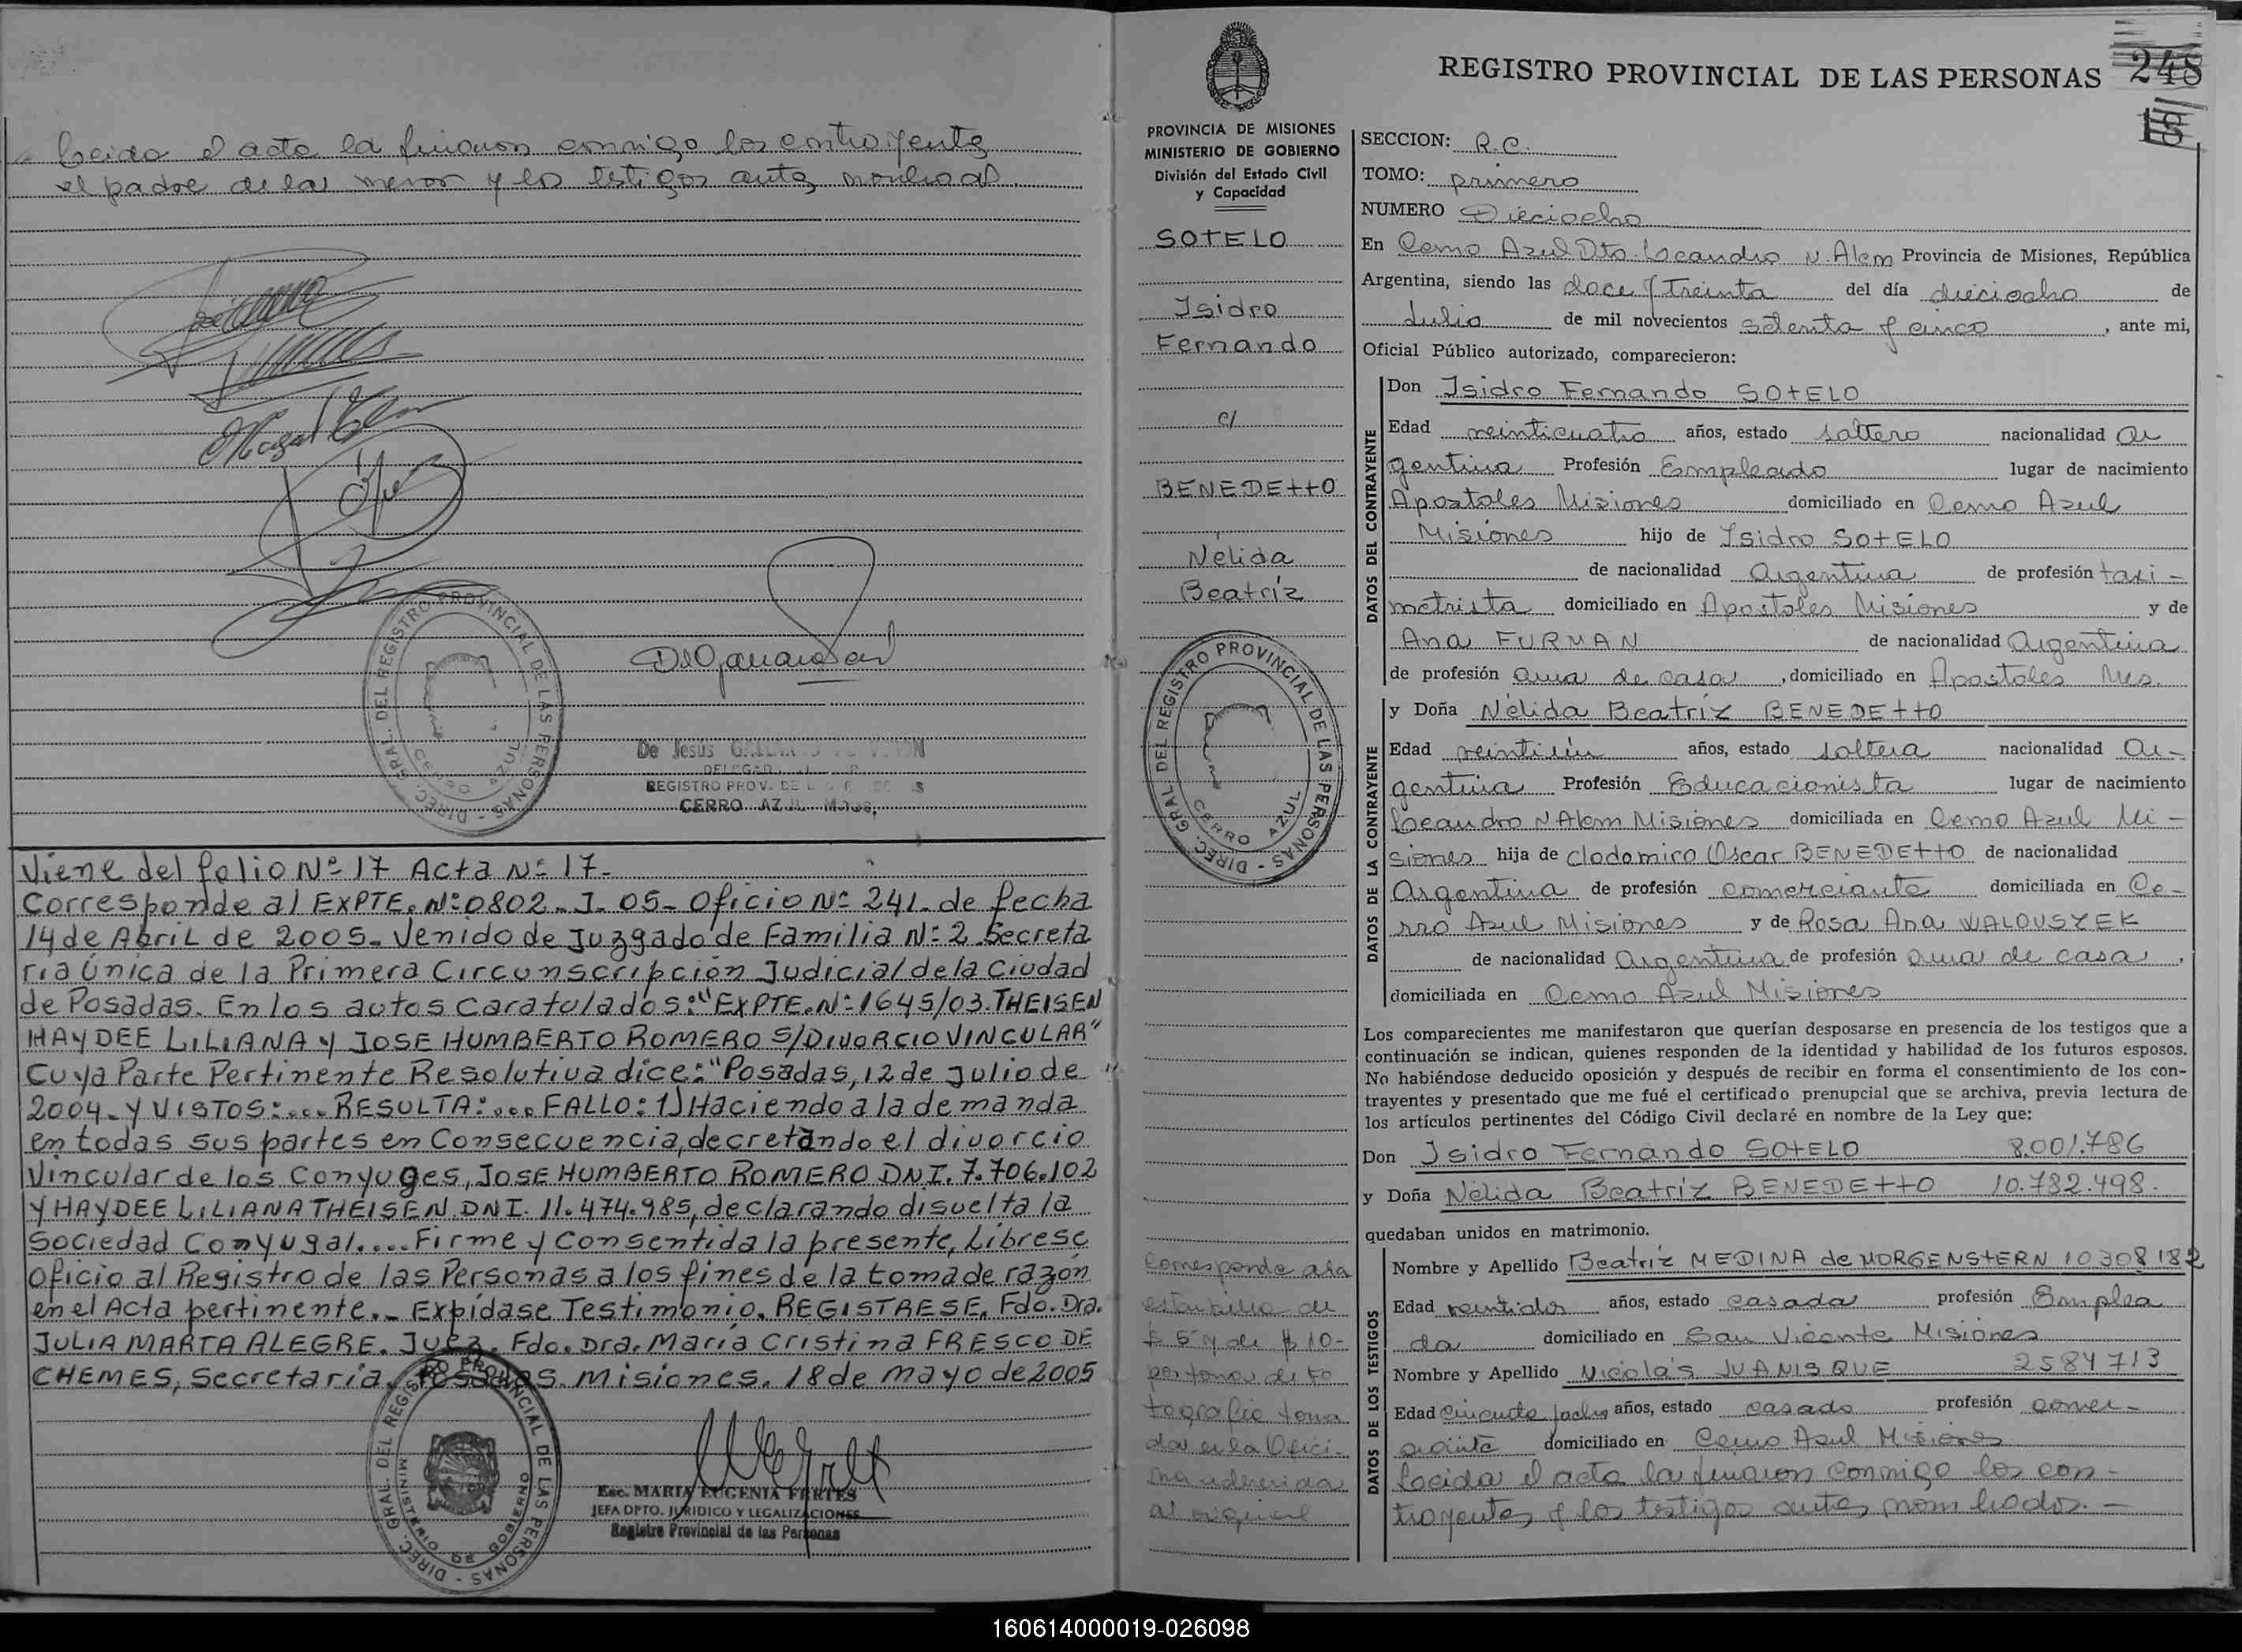 Leida el acta la firmaron conmigo los contrayentes
el padre de la menor y los testigos antes nombrados.
DIREC. GRAL. DEL REGISTRO PROVINCIAL DE LAS PERSONAS
CERRO AZUL
De Jesus
REGISTRO PROV. DE
CERRO AZUL
Viene del folio Nº 17 Acta Nº 17.
Corresponde al EXPTE. Nº 0802. J. 05- Oficio Nº 241. de fecha
14 de Abril de 2005. Venido de Juzgado de Familia Nº 2. Secreta
ria Única de la Primera Circunscripción Judicial de la Ciudad
de Posadas. En los autos Caratulados: "EXPTE. Nº 1645/03. THEISEN
HAYDEE LILIANA Y JOSE HUMBERTO ROMERO S/DIVORCIO VINCULAR"
Cuya Parte Pertinente Resolutiva dice: "Posadas, 12 de Julio de
2004. Y VISTOS:... RESULTA:... FALLO: 1) Haciendo a la demanda
en todas sus partes en Consecuencia, decretando el divorcio
Vincular de los Conyuges, JOSE HUMBERTO ROMERO DNI. 7.706.102
Y HAYDEE LILIANA THEISEN. DNI. 11.474.985, declarando disuelta la
Sociedad Conyugal.... Firme y Consentida la presente, Librese
Oficio al Registro de las Personas a los fines de la toma de razón
en el Acta pertinente.- Expídase Testimonio. REGISTRESE. Fdo. Dra.
JULIA MARTA ALEGRE. Juez. Fdo. Dra. María Cristina FRESCO DE
CHEMES, Secretaria. Posadas. Misiones. 18 de mayo de 2005
DIREC. GRAL. DEL REGISTRO PROVINCIAL DE LAS PERSONAS
MINISTERIO DE GOBIERNO
Esc. MARIA EUGENIA FERTES
JEFA DPTO. JURIDICO Y LEGALIZACIONES
Registro Provincial de las Personas
PROVINCIA DE MISIONES
MINISTERIO DE GOBIERNO
División del Estado Civil
y Capacidad
SOTELO
Isidro
Fernando
c/
BENEDETTO
Nélida
Beatríz
DIREC. GRAL. DEL REGISTRO PROVINCIAL DE LAS PERSONAS
CERRO AZUL
Corresponde a la
estampilla de
$ 5 y de $ 10-
por toma de fo
tografia toma
da en la Ofici-
na adherida
al original
REGISTRO PROVINCIAL DE LAS PERSONAS 248
18
SECCION: R.C.
TOMO: primero
NUMERO Dieciocho
En Cerro Azul Dto. Leandro N. Alem Provincia de Misiones, República
Argentina, siendo las doce y treinta del día dieciocho de
Julio de mil novecientos setenta y cinco, ante mi,
Oficial Público autorizado, comparecieron:
DATOS DEL CONTRAYENTE
Don Isidro Fernando SOTELO
Edad veinticuatro años, estado soltero nacionalidad Ar
gentina Profesión Empleado lugar de nacimiento
Apostoles Misiones domiciliado en Cerro Azul
Misiones hijo de Isidro SOTELO
de nacionalidad Argentina de profesión taxi-
metrista domiciliado en Apostoles Misiones y de
Ana FURMAN de nacionalidad Argentina
de profesión ama de casa, domiciliado en Apostoles Mes.
DATOS DE LA CONTRAYENTE
y Doña Nélida Beatríz BENEDETTO
Edad veintiún años, estado soltera nacionalidad Ar-
gentina Profesión Educacionista lugar de nacimiento
Leandro N Alem Misiones domiciliada en Cerro Azul Mi-
siones hija de Clodomiro Oscar BENEDETTO de nacionalidad
Argentina de profesión comerciante domiciliada en Ce-
rro Azul Misiones y de Rosa Ana WALOUSZEK
de nacionalidad Argentina de profesión ama de casa,
domiciliada en Cerro Azul Misiones
Los comparecientes me manifestaron que querían desposarse en presencia de los testigos que a
continuación se indican, quienes responden de la identidad y habilidad de los futuros esposos.
No habiéndose deducido oposición y después de recibir en forma el consentimiento de los con-
trayentes y presentado que me fué el certificado prenupcial que se archiva, previa lectura de
los artículos pertinentes del Código Civil declaré en nombre de la Ley que:
Don Isidro Fernando SOTELO 8.001.786
y Doña Nélida Beatríz BENEDETTO 10.782.498.
quedaban unidos en matrimonio.
DATOS DE LOS TESTIGOS
Nombre y Apellido Beatríz MEDINA de MORGENSTERN 10308182
Edad veintidos años, estado casada profesión Emplea
da domiciliado en San Vicente Misiones
Nombre y Apellido Nicolás JUANISQUE 2584713
Edad cincuenta y ocho años, estado casado profesión comer-
ciante domiciliado en Cerro Azul Misiones
Leeida el acta la firmaron conmigo los con-
trayentes y los testigos antes nombrados.-
160614000019-026098